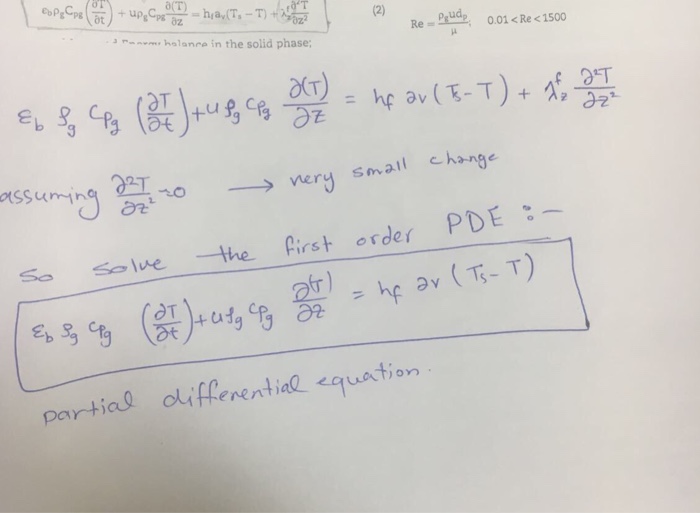 ε_b ρ_g C_pg (∂T/∂t) + uρ_g C_pg ∂(T)/∂z = h_f a_v (T_s − T) + λ_z^f ∂²T/∂z²
(2)
Re = ρ_g u d_p / μ; 0.01 < Re < 1500
in the solid phase;
ε_b ρ_g C_pg (∂T/∂t) + u ρ_g C_pg ∂(T)/∂z = h_f a_v (T_s − T) + λ_z^f ∂²T/∂z²
assuming ∂²T/∂z² ≈ 0 → very small change
so solve the first order PDE :-
ε_b ρ_g C_pg (∂T/∂t) + u ρ_g C_pg ∂(T)/∂z = h_f a_v (T_s − T)
partial differential equation.